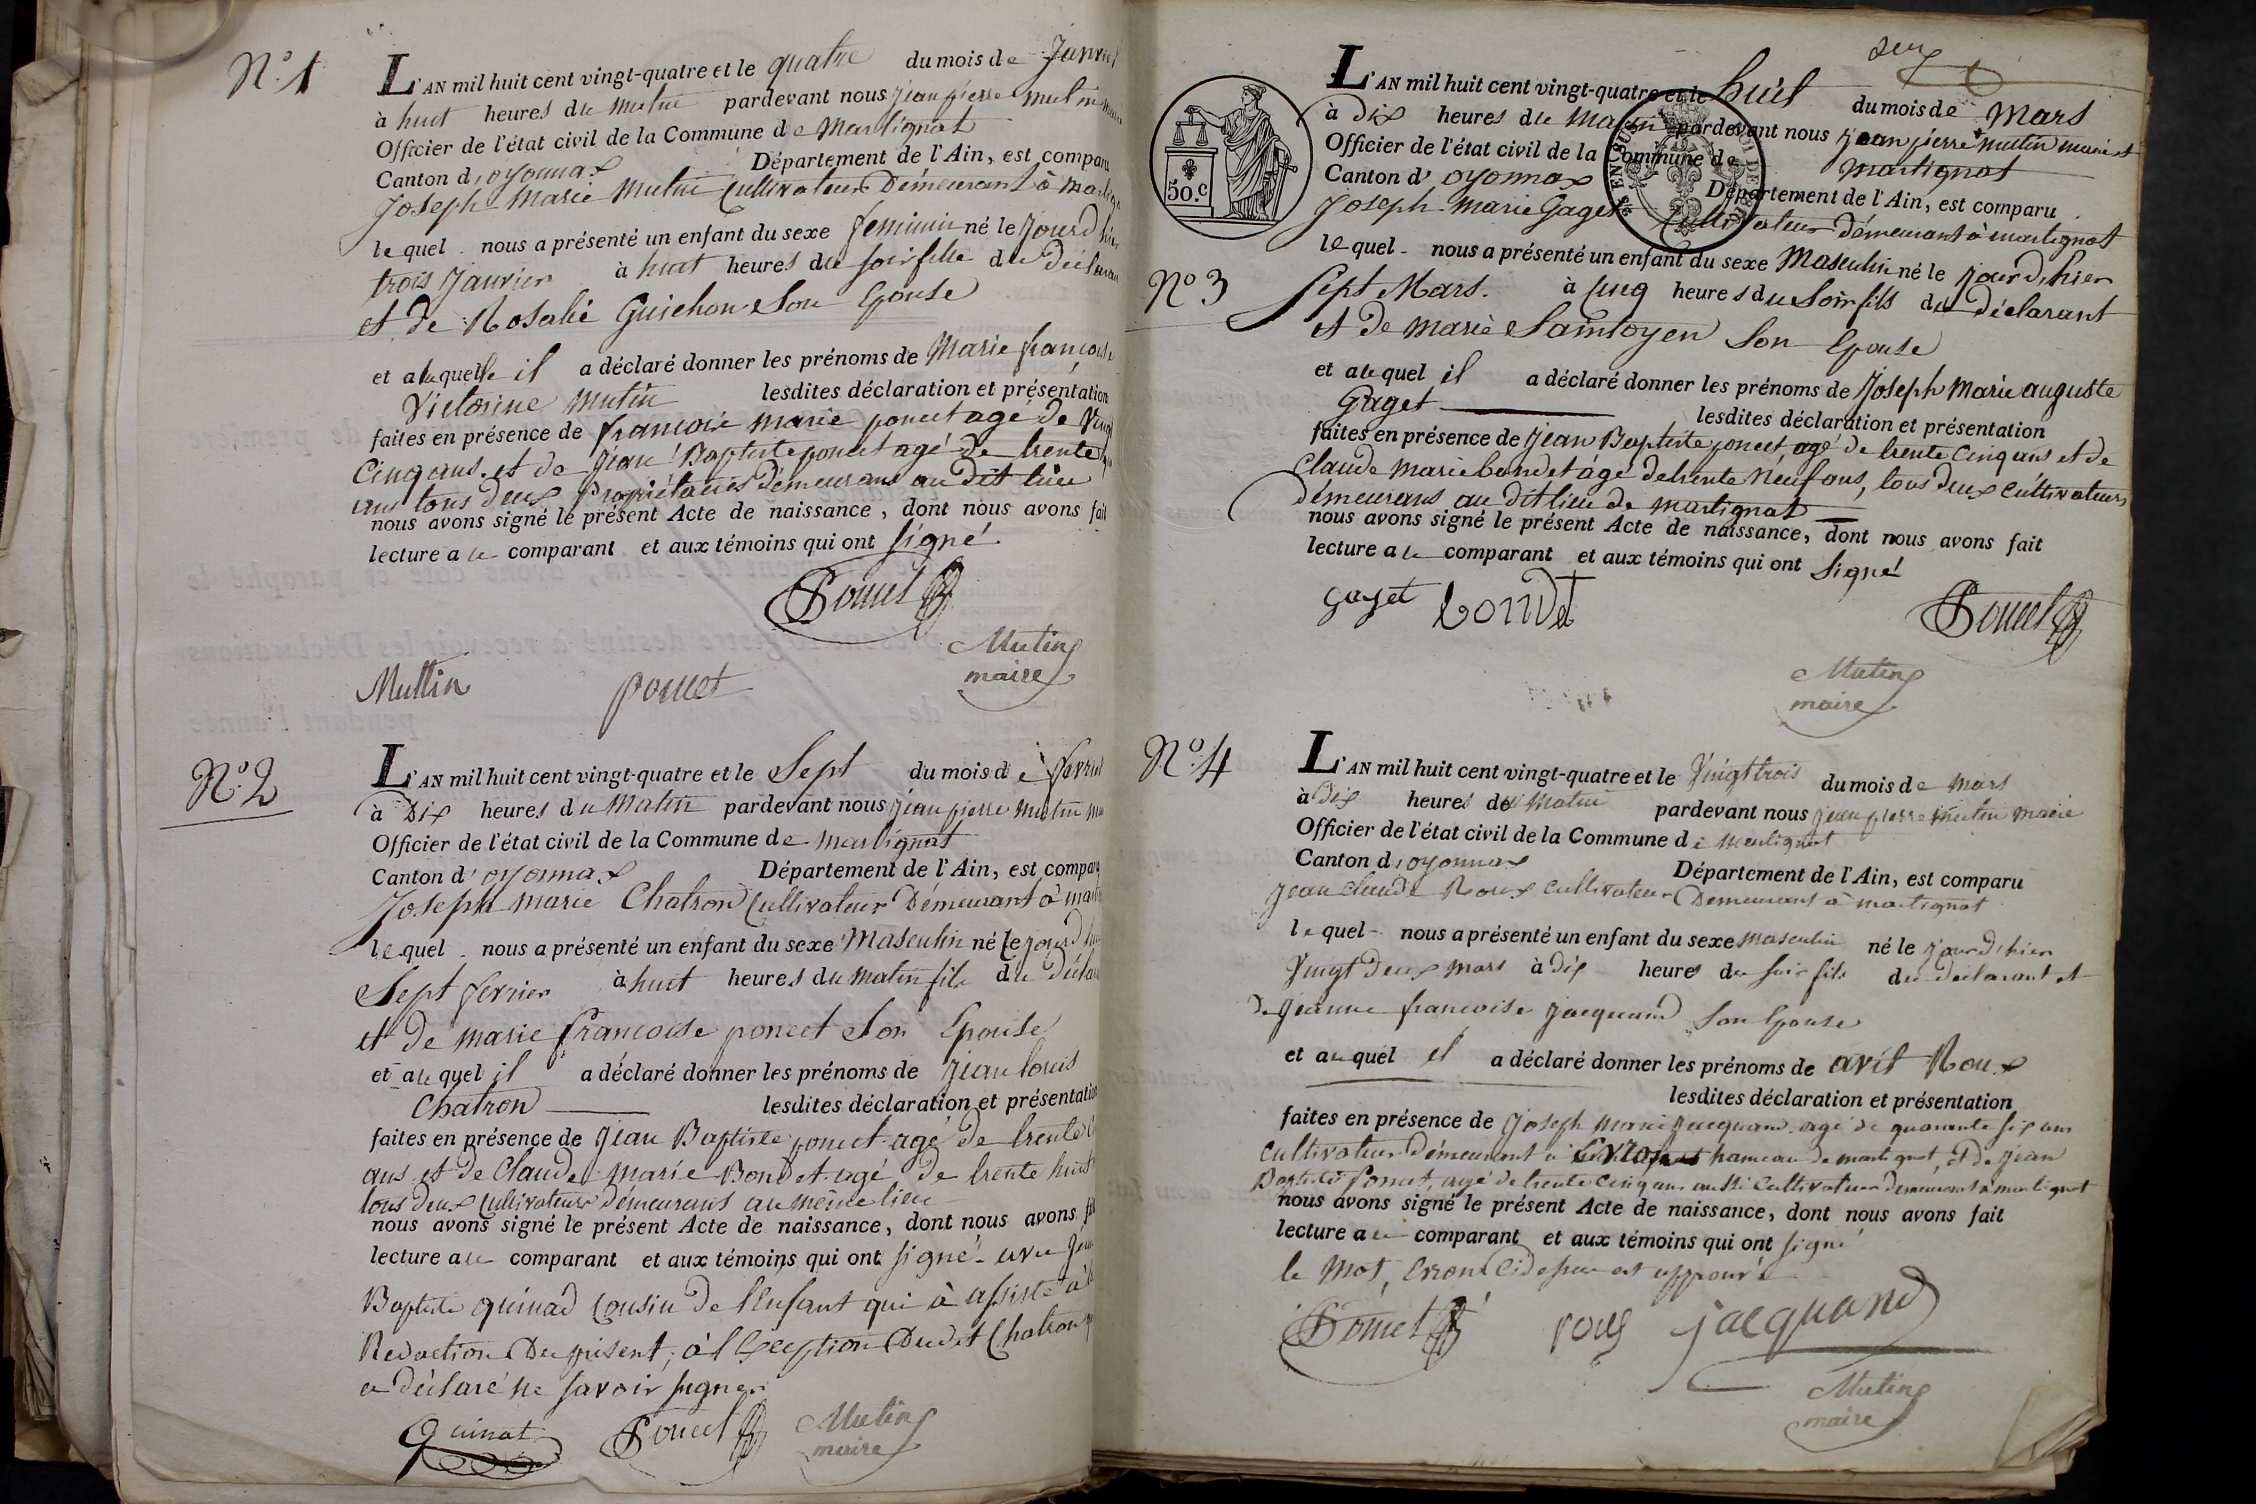 N.º 1
L'AN mil huit cent vingt-quatre et le quatre du mois de Janvier
à huit heures du matin pardevant nous jean pierre mutin maire
Officier de l'état civil de la Commune de martignat
Canton d'oyonnax Département de l'Ain, est comparu
Joseph marie mutin Cultivateur Démeurant à
lequel nous a présenté un enfant du sexe feminin né le jourd'hier
trois janvier à huit heures du soir fille du
et de Rosalie Guichon Son Epouse
et a laquelle il a déclaré donner les prénoms de Marie francoise
Victorine mutin lesdites déclaration et présentation
faites en présence de francois marie poncet agé de vingt
Cinq ans et de jean Baptiste poncet agé de trente
ans tous deux Propriétaires démeurans au dit lieu
nous avons signé le présent Acte de naissance, dont nous avons fait
lecture a u comparant et aux témoins qui ont signé
Poncet
Mutin
maire
Muttin poncet
N.º 2
L'AN mil huit cent vingt-quatre et le Sept du mois de fevrier
à Dix heures du Matin pardevant nous jean pierre mutin
Officier de l'état civil de la Commune de martignat
Canton d'oyonnax Département de l'Ain, est comparu
Joseph marie Chatron Cultivateur Démeurant à
lequel nous a présenté un enfant du sexe Masculin né le
Sept fevrier à huit heures du matin fils du
et de marie francoise poncet Son Epouse
et au quel il a déclaré donner les prénoms de jean louis
Chatron lesdites déclaration et présentation
faites en présence de jean Baptiste poncet agé de trente
ans et de Claude marie Bondet agé de trente huit
tous deux Cultivateurs démeurans au même lieu
nous avons signé le présent Acte de naissance, dont nous avons
lecture au comparant et aux témoins qui ont signé avec
Baptiste quinad Cousin de l'Enfant qui à assisté à
Redaction Du présent, à l'Exception Dudit Chatron
a déclaré ne savoir signer
Quinat Poncet Mutin
maire
L'AN mil huit cent vingt-quatre et le huit du mois de Mars
à Dix heures du Matin pardevant nous jean pierre mutin maire
Officier de l'état civil de la Commune de martignat
Canton d'oyonnax Département de l'Ain, est comparu
50.c
Joseph Marie Gaget Cultivateur Démeurant à martignat
lequel nous a présenté un enfant du sexe Masculin né le jourd'hier
N.º 3
Sept Mars. à cinq heures du Soir fils du déclarant
et de marie Saintoyen Son Epouse
et au quel il a déclaré donner les prénoms de Joseph Marie auguste
Gaget lesdites déclaration et présentation
faites en présence de jean Baptiste poncet, agé de trente Cinq ans et de
Claude Marie bondet agé de trente Neuf ans, tous deux Cultivateurs
démeurans au dit lieu de martignat
nous avons signé le présent Acte de naissance, dont nous avons fait
lecture au comparant et aux témoins qui ont Signé
gaget bondet Poncet
Mutin
maire
N.º 4
L'AN mil huit cent vingt-quatre et le Vingt trois du mois de mars
à Dix heures du Matin pardevant nous jean pierre mutin maire
Officier de l'état civil de la Commune de martignat
Canton d'oyonnax Département de l'Ain, est comparu
Jean claude Roux cultivateur Demeurant à martignat
lequel nous a présenté un enfant du sexe masculin né le jourd'hier
Vingt Deux mars à dix heures du soir fils du declarant et
de jeanne francoise jacquand Son Epouse
et au quel il a déclaré donner les prénoms de avit Roux
lesdites déclaration et présentation
faites en présence de joseph marie jacquand agé de quarante six ans
Cultivateur démeurant à hameau de martignat, et de jean
Baptiste Poncet, agé de trente cinq ans aussi Cultivateur demeurant à martignat
nous avons signé le présent Acte de naissance, dont nous avons fait
lecture au comparant et aux témoins qui ont signé
le Mot, est approuvé
Poncet roux jacquand
Mutin
maire